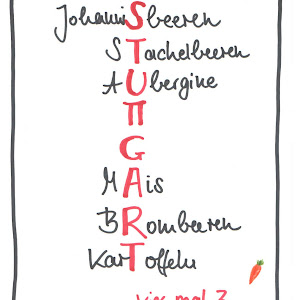 JohanniSbeeren
STachelbeeren
AUbergine
TT
G
MAis
BRombeeren
KarToffeln
mal